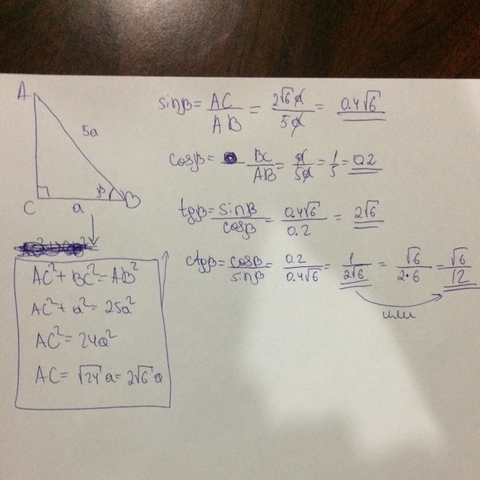 A
5a
C
a
β
B
AC² + BC² = AB²
AC² + a² = 25a²
AC² = 24a²
AC = √24 a = 2√6 a
sinβ = AC/AB = 2√6a/5a = 0.4√6
cosβ = BC/AB = a/5a = 1/5 = 0.2
tgβ = sinβ/cosβ = 0.4√6/0.2 = 2√6
ctgβ = cosβ/sinβ = 0.2/0.4√6 = 1/2√6 = √6/2·6 = √6/12
или